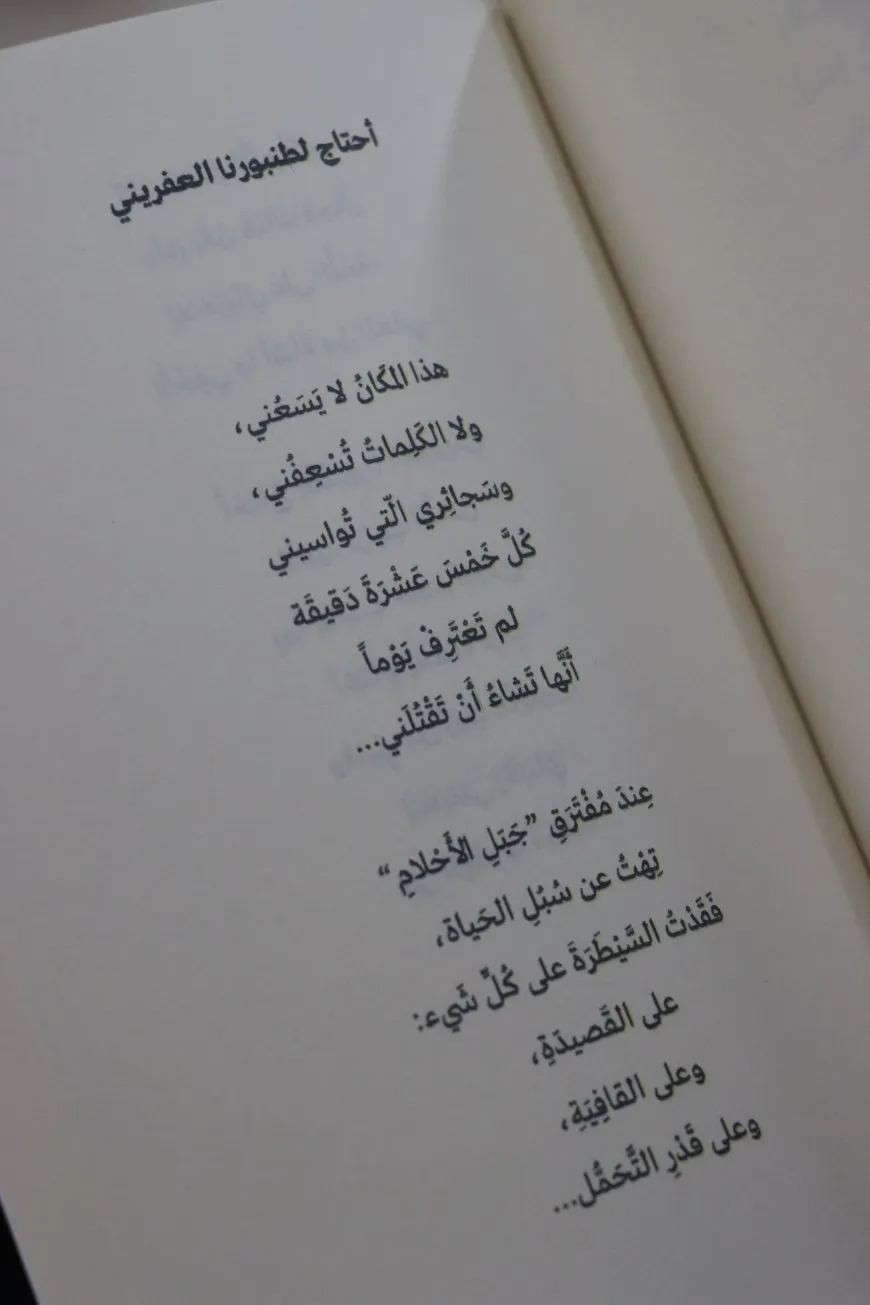 أحتاج لطنبورنا العفريني
هذا المَكَانُ لا يَسَعُني،
ولا الكَلِماتُ تُسْعِفُني،
وسَجائِري الّتي تُواسيني
كُلَّ خَمْسَ عَشْرَةَ دَقيقَة
لم تَعْتَرِفْ يَوْماً
أَنَّها تَشاءُ أَنْ تَقْتُلَني...
عِندَ مُفْتَرَقِ ”جَبَلِ الأَحْلامِ “
تِهْتُ عن سُبُلِ الحَياة،
فَقَدْتُ السَّيْطَرَةَ على كُلِّ شَيء:
على القَصيدَةِ،
وعلى القافِيَةِ،
وعلى قَدْرِ التَّحَمُّل...